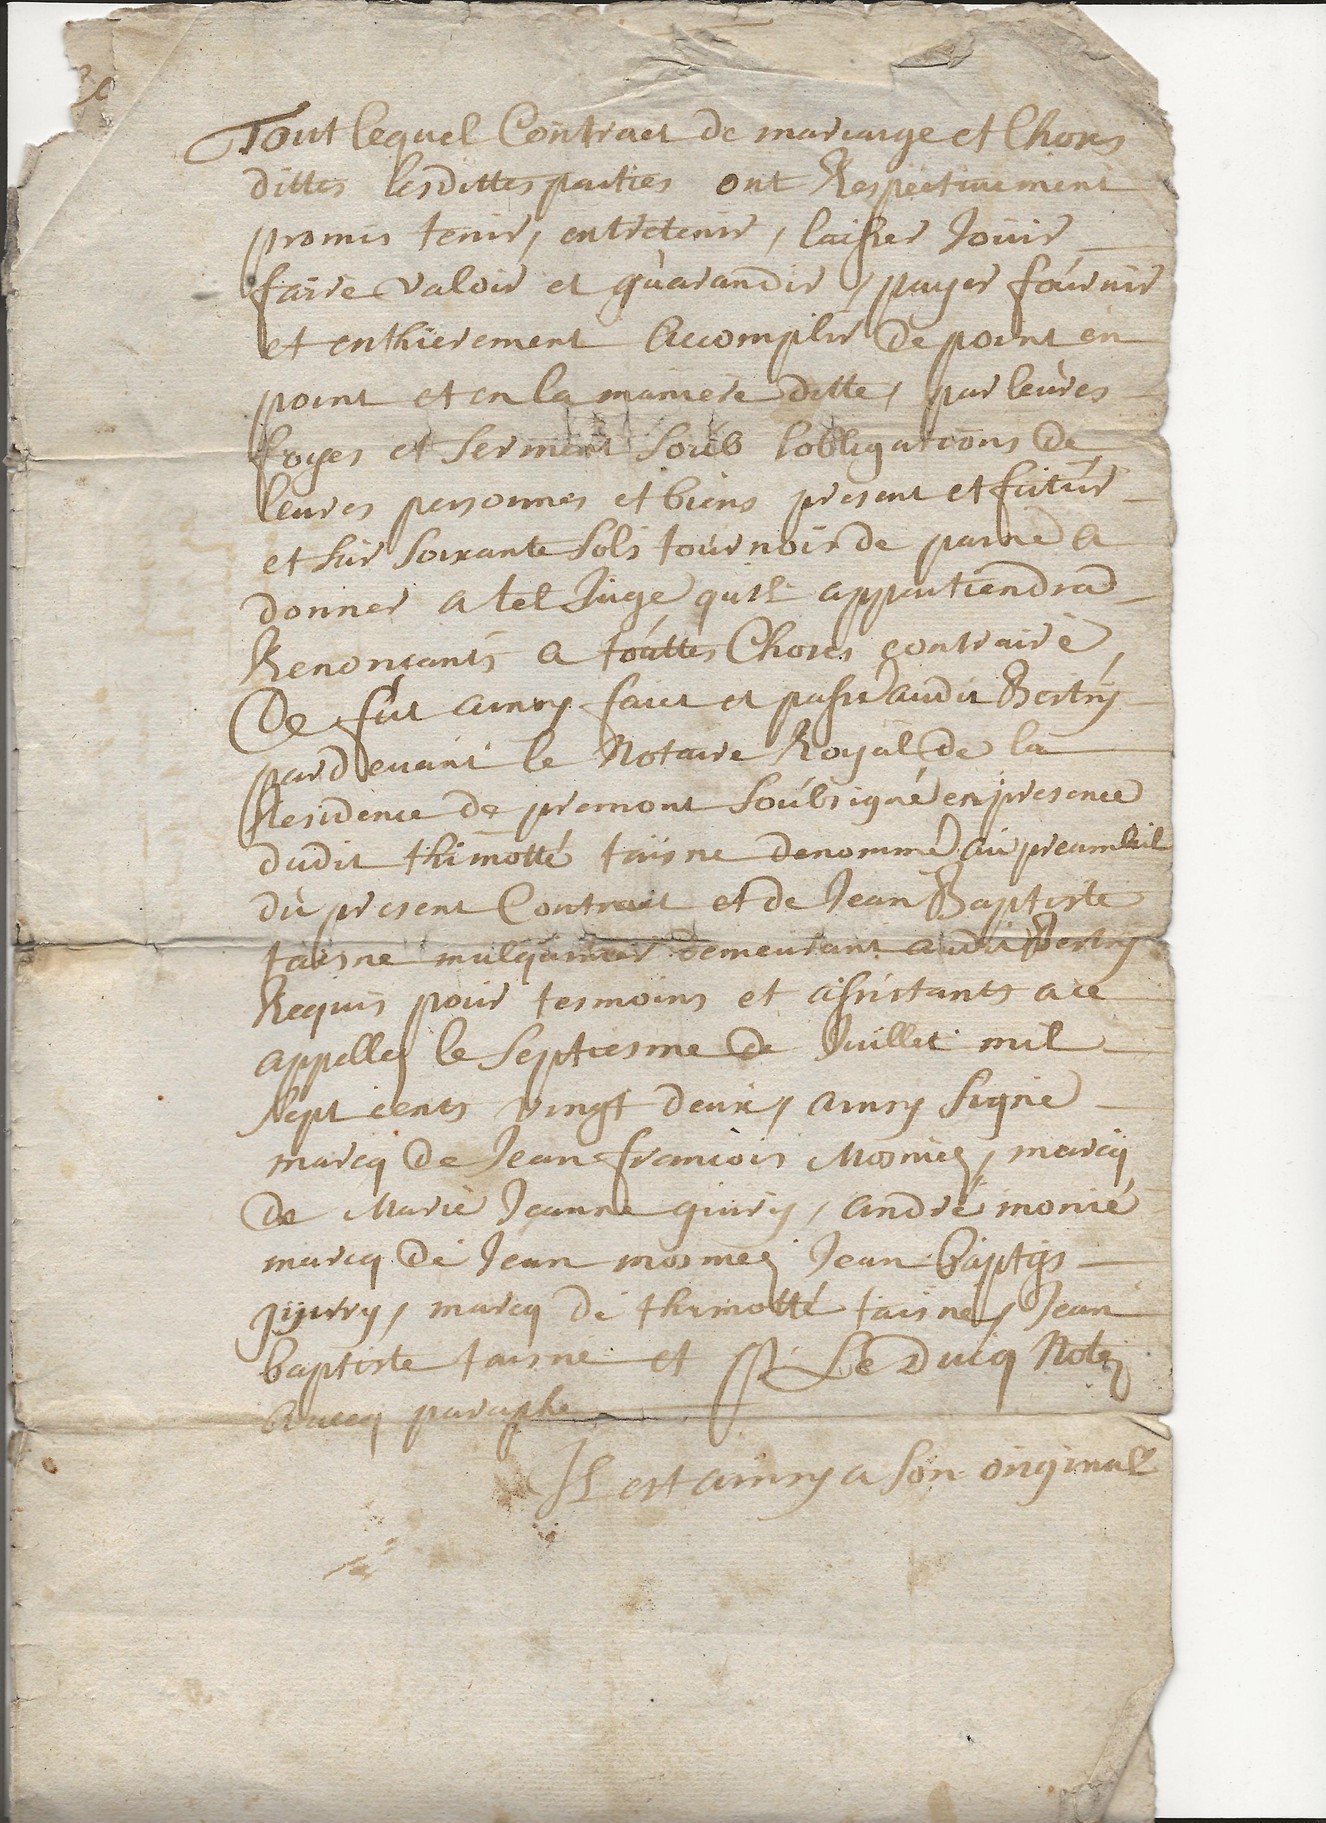 Tout lequel Contract de mariauge et Choses
dittes lesdittes parties ont Respectiuement
promis tenir, entretenir, laisser Jouir
faire valoir et guarandir, payer fournir
et enthierement accomplir de point en
point et en la maniere ditte, par leures
foyes et serment soub lobligations de
leures personnes et biens present et futur
et sur soixante sols tournois de paine a
donner a tel Juge quil appartiendra
Renonçants a touttes Choses contraire,
Ce fut ainsy faict et passé audit Bertry
pardeuant le Notaire Royal de la
Residence de premont soubsigné en presence
dudit thimotté taisne denommé au preambul
du present Contract et de Jean Baptiste
taisne mulquinier demeurant audit Bertry
Requis pour tesmoins et assistants a ce
appellez le septiesme de Juillet mil
sept cents vingt deux, ainsy signé
marcq de Jean francois Mosniez, marcq
de Marie Jeanne giury, andré monié
marcq de Jean mosniez Jean baptis
gyurry, marcq de thimotté taisne, Jean
baptiste taisne et Le Ducq Notz
auecq paraphe
Il est ainsy a son original